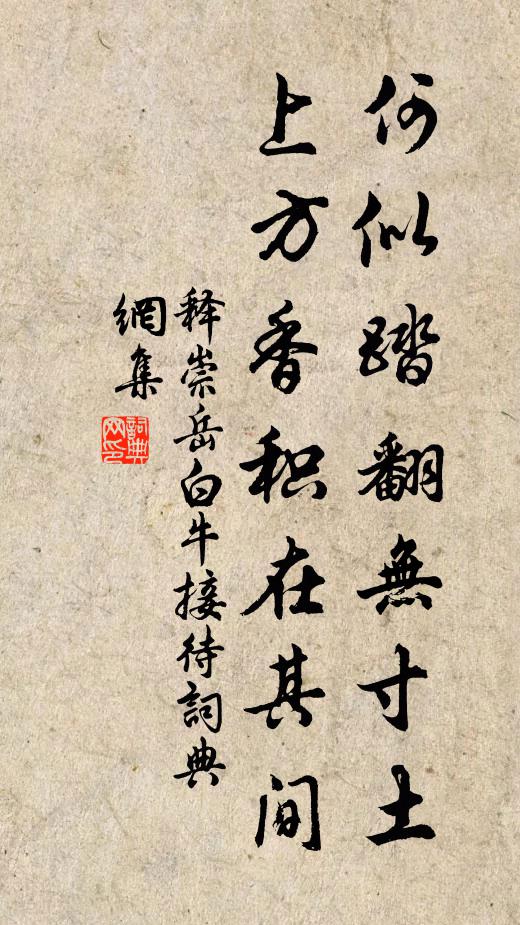 何似踏翻無寸土
上方香积在其间
释崇岳白牛接待詞典
網集
詞典
网印